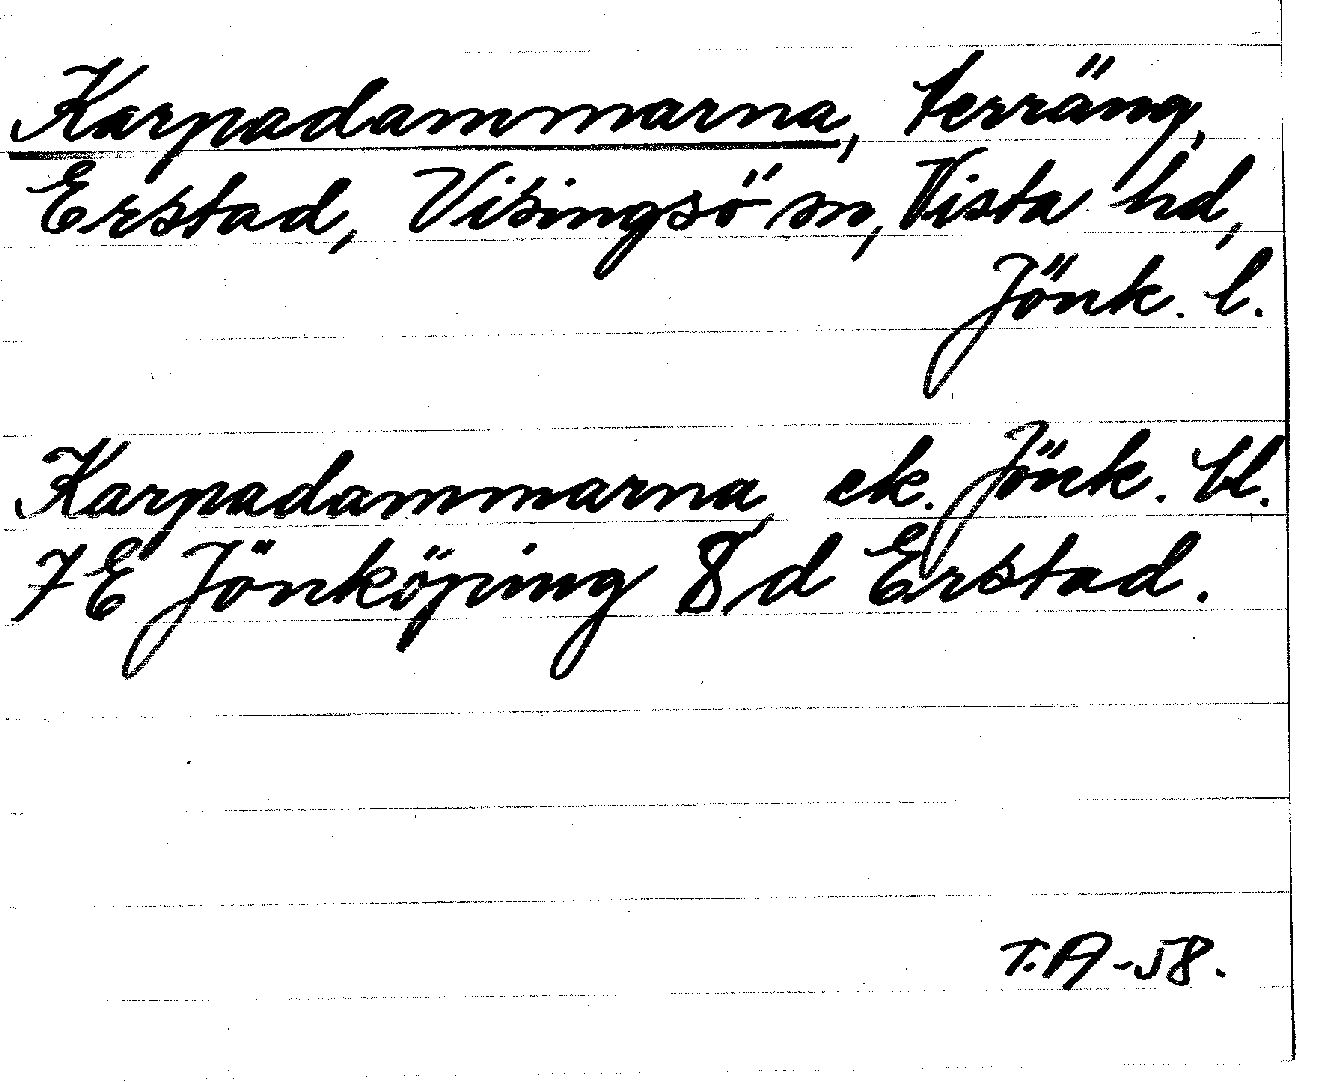 Karpadammarna, terräng,
Erstad, Visingsö sn, Vista hd,
Jönk. l.
Karpadammarna, ek. Jönk. bl.
7E Jönköping 8 d Erstad.
T.A-58.